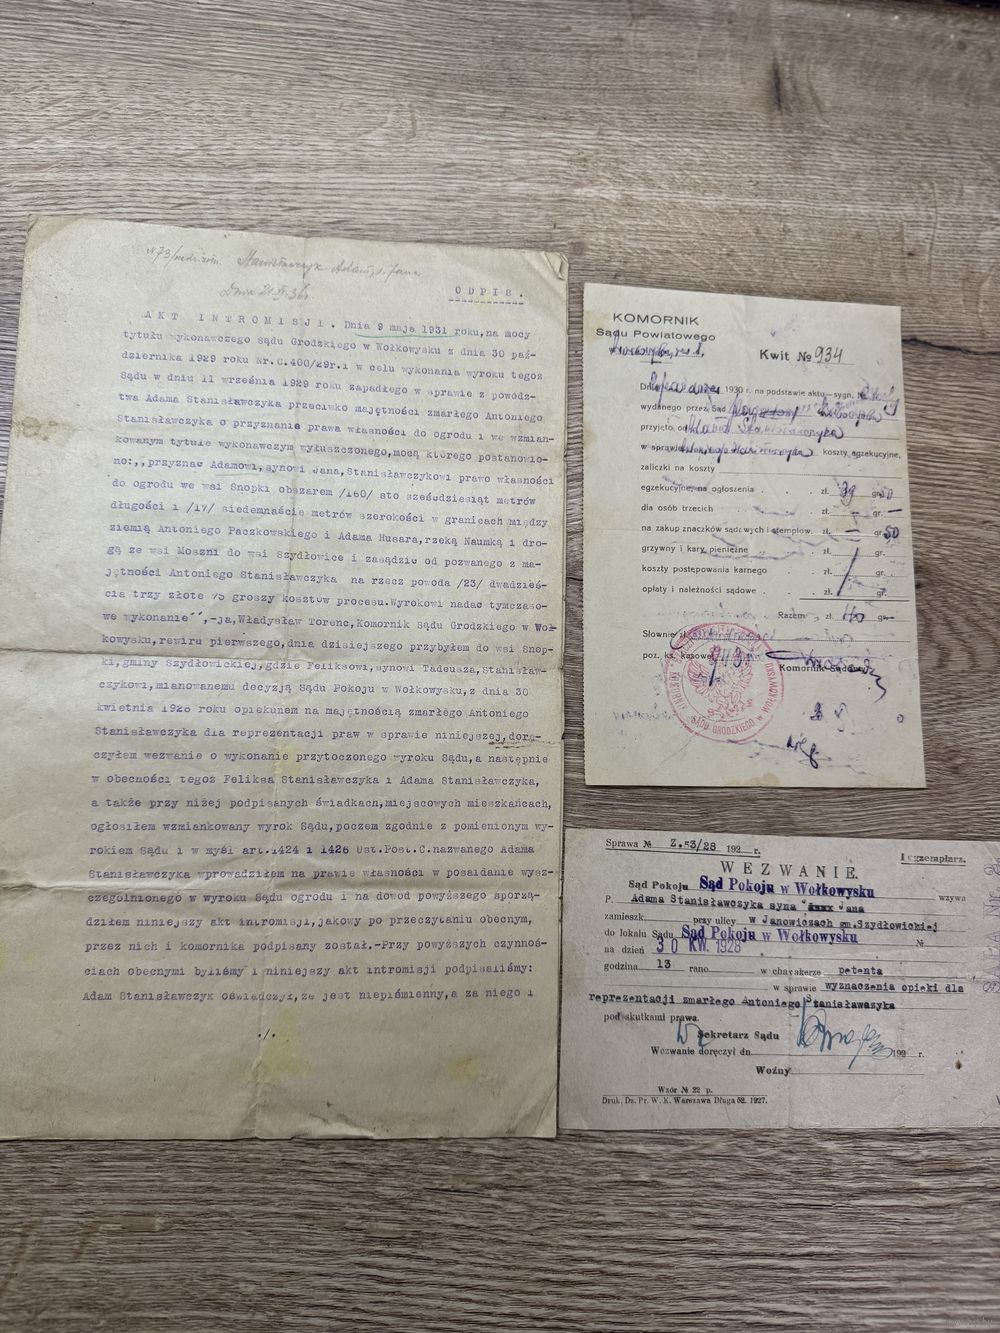 Stanisławczyk Adam, s. Jana
ODPIS.
AKT INTROMISJI. Dnia 9 maja 1931 roku, na mocy
tytułu wykonawczego Sądu Grodzkiego w Wołkowysku z dnia 30 paź-
dziernika 1929 roku Nr.C.400/29r.i w celu wykonania wyroku tegoż
Sądu w dniu 11 września 1929 roku zapadłego w sprawie z powódz-
twa Adama Stanisławczyka przeciwko majętności zmarłego Antoniego
Stanisławczyka o przyznanie prawa własności do ogrodu i we wzmian-
kowanym tytule wykonawczym wyłuszczonego, mocą którego postanowio-
no:,,przyznać Adamowi, synowi Jana, Stanisławczykowi prawo własności
do ogrodu we wsi Snopki obszarem /160/ sto sześćdziesiąt metrów
długości i /17/ siedemnaście metrów szerokości w granicach między
ziemią Antoniego Paczkowskiego i Adama Husara, rzeką Naumką i dro-
gą ze wsi Moszni do wsi Szydłowice i zasądzić od pozwanego z ma-
jętności Antoniego Stanisławczyka na rzecz powoda /23/ dwadzieś-
cia trzy złote 75 groszy kosztów procesu. Wyrokowi nadać tymczaso-
we wykonanie",-ja, Władysław Torenc, Komornik Sądu Grodzkiego w Woł-
kowysku, rewiru pierwszego, dnia dzisiejszego przybyłem do wsi Snop-
ki, gminy Szydłowickiej, gdzie Feliksowi, synowi Tadeusza, Stanisław-
czykowi, mianowanemu decyzją Sądu Pokoju w Wołkowysku, z dnia 30
kwietnia 1928 roku opiekunem na majętnością zmarłego Antoniego
Stanisławczyka dla reprezentacji praw w sprawie niniejszej, dorę-
czyłem wezwanie o wykonanie przytoczonego wyroku Sądu, a następnie
w obecności tegoż Feliksa Stanisławczyka i Adama Stanisławczyka,
a także przy niżej podpisanych świadkach, miejscowych mieszkańcach,
ogłosiłem wzmiankowany wyrok Sądu, poczem zgodnie z pomienionym wy-
rokiem Sądu i w myśl art.1424 i 1426 Ust.Post.C. nazwanego Adama
Stanisławczyka wprowadziłem na prawie własności w posiadanie wysz-
czególnionego w wyroku Sądu ogrodu i na dowód powyższego sporzą-
dziłem niniejszy akt intromisji, jakowy po przeczytaniu obecnym,
przez nich i komornika podpisany został.-Przy powyższych czynnoś-
ciach obecnymi byliśmy i niniejszy akt intromisji podpisaliśmy:
Adam Stanisławczyk oświadczył, że jest niepiśmienny, a za niego i
./.
KOMORNIK
Sądu Powiatowego
Kwit № 934
Dnia 1930 r. na podstawie aktu sygn.
wydanego przez Sąd
przyjęto od Adama Stanisławczyka
w sprawie koszty egzekucyjne,
zaliczki na koszty
egzekucyjne, na ogłoszenia zł. 39 gr. 50
dla osób trzecich zł. — gr. —
na zakup znaczków sądowych i stemplow. zł. — gr. 50
grzywny i kary pieniężne zł. gr.
koszty postępowania karnego zł. gr.
opłaty i należności sądowe zł. gr.
Razem zł. 40 gr. —
Słownie zł.
poz. ks. kasowej 943
Komornik Sądowy
SĄDU GRODZKIEGO w WOŁKOWYSKU
Sprawa № Z.53/28 192 r.
I egzemplarz.
WEZWANIE.
Sąd Pokoju Sąd Pokoju w Wołkowysku wzywa
P. Adama Stanisławczyka syna xxxx Jana
zamieszk. przy ulicy w Janowiczach gm.Szydłowickiej
do lokalu Sądu Sąd Pokoju w Wołkowysku №
na dzień 30 KW. 1928
godzina 13 rano w charakterze petenta
w sprawie wyznaczenia opieki dla
reprezentacji zmarłego Antoniego Stanisławczyka
pod skutkami prawa.
Sekretarz Sądu
Wezwanie doręczył dn. 192 r.
Woźny
Wzór № 22 p.
Druk. Dz. Pr. W. K. Warszawa Długa 52. 1927.